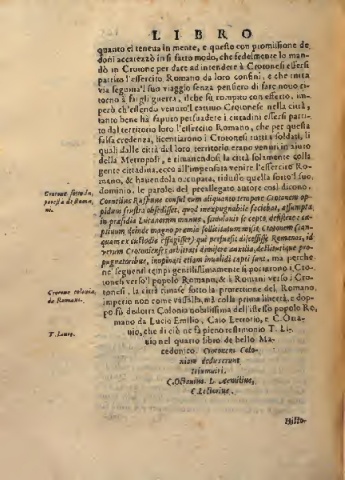 LIBRO
quanto ei teneua in mente, e questo con promissione de
doni accarezzò in sì fatto modo, che fedelmente lo man-
dò in Crotone per dare ad intendere à Crotonesi essersi
partito l'essercito Romano da loro confini, e che
via seguina'l suo viaggio senza pensiero di fare nouo ri-
torno à fargli guerra, debe sì compito con essersio, im-
però ch'essendo venuto Latinio Crotonese nella città,
tanto bene hà saputo persuadere i cittadini essersi parti-
to dal territorio loro l'essercito Romano, che per questa
falsa credenza, licentiarono i Crotonesi tutti i soldati, li
quali dalle città del loro territorio erano venuti in aiuto
della Metropoli, e rimanendosi la città solamente colla
gente cittadina, ecco all'impensata venire l'essercito Ro-
mano, & hauendola occupata, ridusse quella sotto'l suo
dominio. le parole del preallegato autore così dicono.
Crotone sotto la
potestà di Roma-
ni.
Cornelius Ruffinus consul cum aliquanto tempore Crotonem op-
pidum frustrà obsedisset, quod inexpugnabile fecerat, assumpta
in præsidia Lucanorum manus, simulauit se cœpto desistere: ca-
ptiuum deinde magno præmio sollicitatum misit Crotonem (tan-
quam ex custodia effugisset) qui persuasit discessisse Romanos, id
verum Crotonienses arbitrati dimisere auxilia, destitutique pro-
pugnatoribus, inopinati etiam inualidi capti sunt, ma perche
ne seguenti tempi gentilissimamente si portarono i Cro-
tonesi verso'l popolo Romano, & i Romani verso i Cro-
tonesi, la città rimase sotto la protettione del Romano
imperio non come vassalla, mà colla prima libertà, e dop-
po fù dedotta Colonia nobilissima dell'istesso popolo Ro-
mano da Lucio Emilio, Caio Letorio, e C. Otta-
uio, che di ciò ne fà pieno testimonio T. Li-
uio nel quarto libro de bello Ma-
cedonico. Crotonem Colo-
niam deduxerunt
triumuiri.
C. Octauius. L. Aemilius,
C. Letorius.
Crotone colonia
de Romani.
T. Liuio.
Histo-